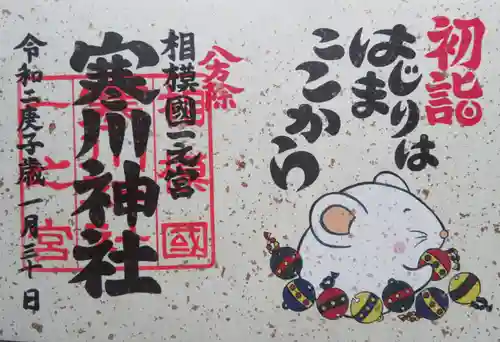 初詣
はじりは
はま
ここから
八方除
相模國一之宮
寒川神社
令和二庚子歳一月三十日
相模國
一之宮